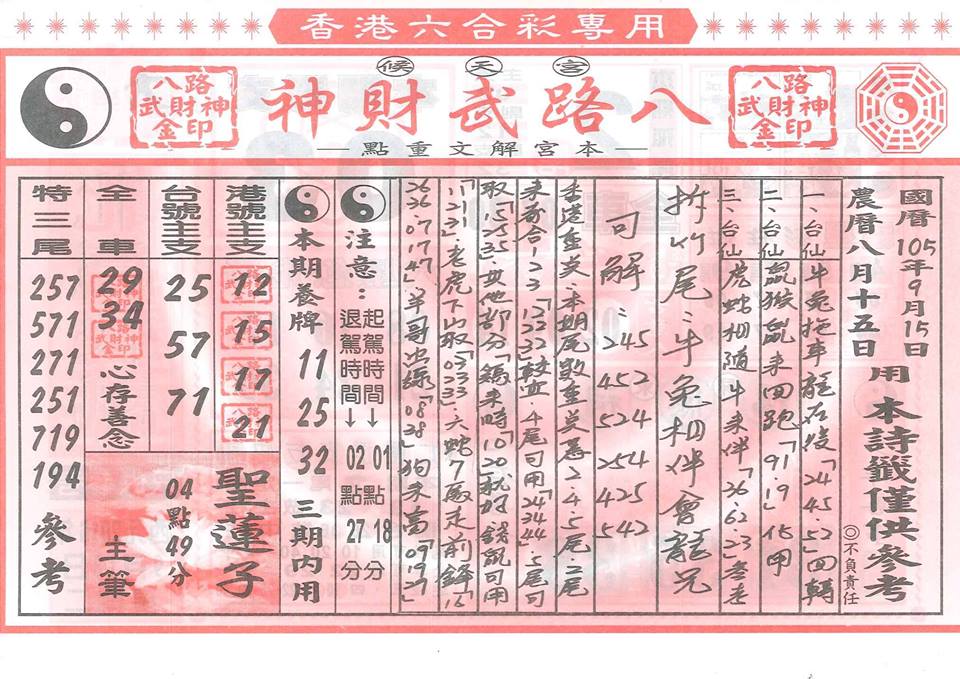 香港六合彩專用
候天宮
八路武財神
八路
武財神
金印
八路
武財神
金印
本宮解文重點
國曆105年9月15日
農曆八月十五日
用本詩籤僅供參考
◎不負責任
一、台仙 牛兔拖車龍在後「24.45.52」回轉
二、台仙 鼠猴鼠來回跑「91.19」化甲
三、台仙 虎蛇相隨牛來伴「36.62.23」
拆竹尾：牛兔相伴會龍兄
可解：245 452 524 254 425 542
香港重点：本期尾數重点為2.4.5尾.2尾
來看合1 2 3「12 22 32」較重 4尾可用「24 34 44」.5尾可
取「15 25 35」
時「10 20」就好
可用
「11 21 31」老虎下山取「03 33」.六蛇7處走前鋒「16
26 36.07 17 47」.羊哥出線「08 38」狗來當「09 19 29」
注意：
起駕時間→01點18分
退駕時間→02點27分
本期養牌 11 25 32 三期內用
港號主支
12
15
17
21
台號主支
25
57
71
聖蓮子
04點49分
主筆
全車
29
34
心存善念
特三尾
257
571
271
251
719
194
參考